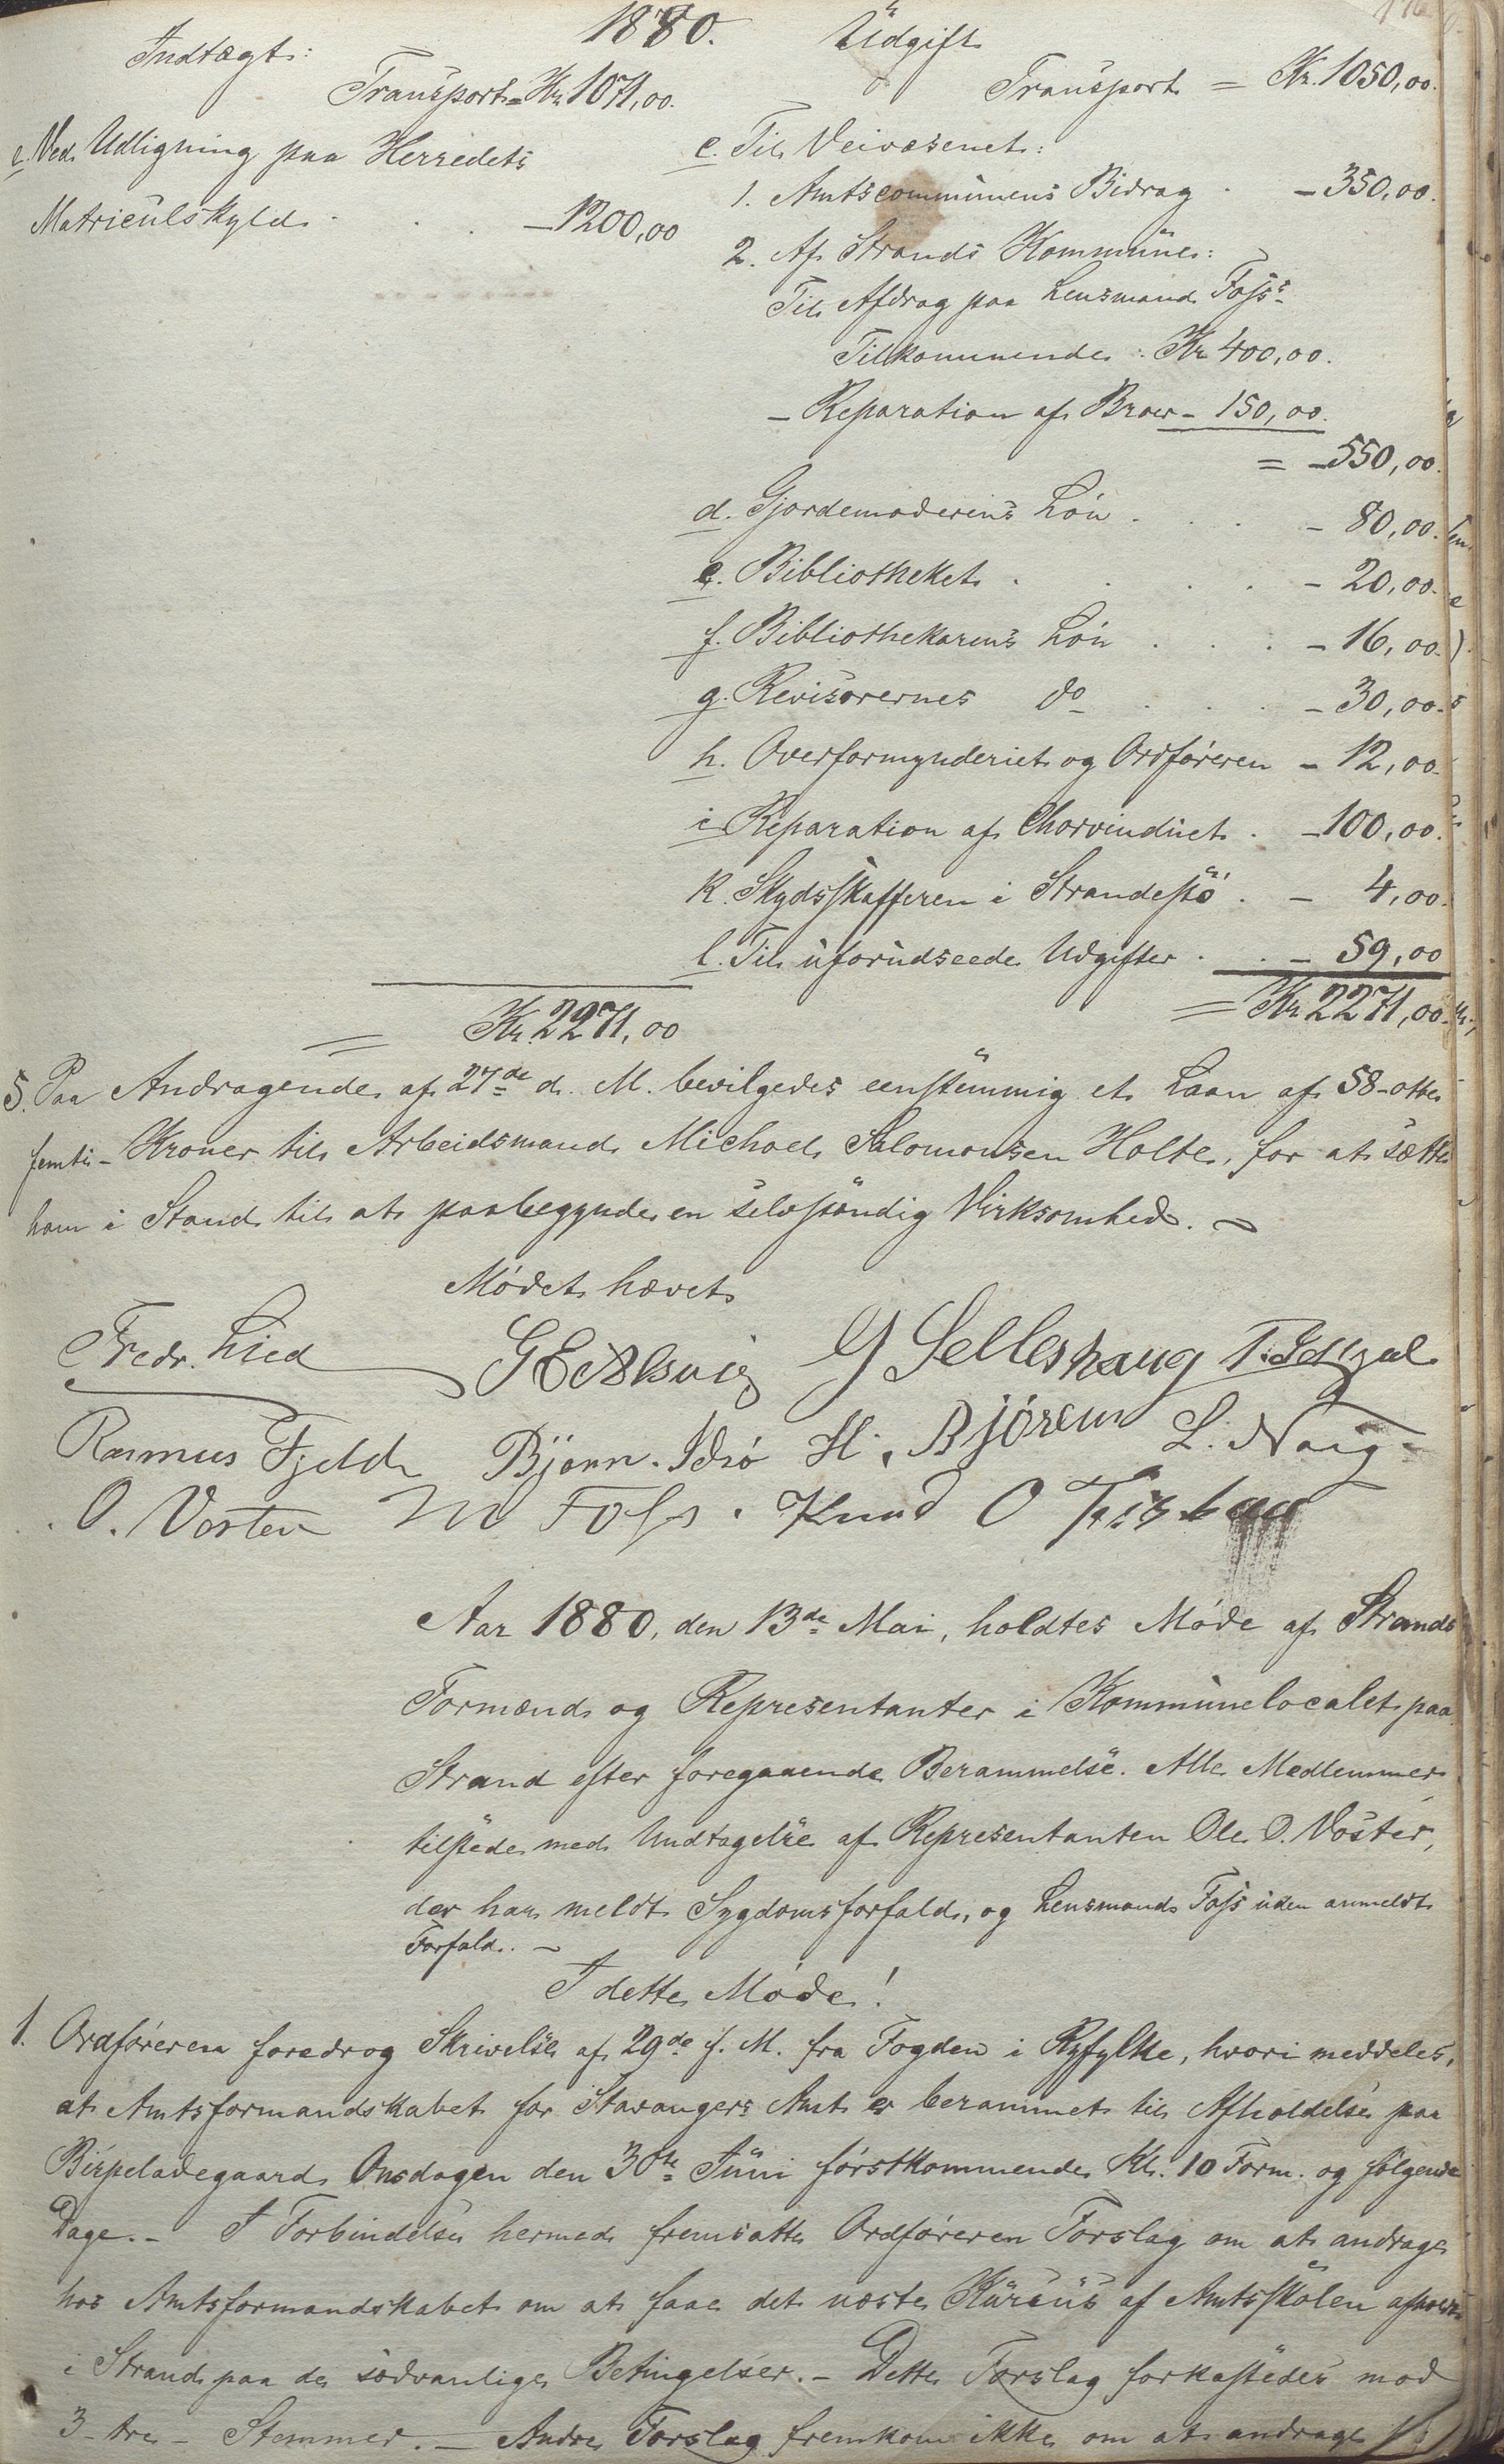 1880.
Indtægt:
Transport = Kr. 1071,00.
c. Ved Udligning paa Herredets
Matriculskyld . . . — 1200,00
= Kr. 2271,00
Udgift
Transport = Kr. 1050,00.
c. Til Veivæsenet:
1. Amtscommunens Bidrag . — 350,00.
2. Af Strands Kommune:
Til Afdrag paa Lensmand Foss's
Tilkommende: Kr. 400,00.
— Reparation af Broer — 150,00.
= — 550,00.
d. Gjordemoderens Løn . . . — 80,00.
e. Bibliotheket . . . . — 20,00.
f. Bibliothekarens Løn . . . — 16,00.
g. Revisorernes do . . . — 30,00.
h. Overformynderiet og Ordføreren — 12,00.
i. Reparation af Chorvinduet . — 100,00.
k. Skydsskafferen i Strandestø . — 4,00.
l. Til uforudseede Udgifter . . — 59,00
= Kr. 2271,00.
5. Paa Andragende af 27de d. M. bevilgedes eenstemmig et Laan af 58 - otte
femti - Kroner til Arbeidsmand Michael Salomonsen Holte, for at sætte
ham i Stand til at paabegynde en selvstændig Virksomhed. —
Mødet hævet
Fredr. Lied G E Alsvig G Selleshaug T. Idsal
Rasmus Fjelde Bjørn. Idsø H. Bjøreim L. Nag
O. Voster M Foss. Knud O Tistau
Aar 1880, den 13de Mai, holdtes Møde af Strands
Formænd og Representanter i Kommunelocalet paa
Strand efter foregaaende Berammelse. Alle Medlemmer
tilstede med Undtagelse af Representanten Ole O. Voster,
der har meldt Sygdomsforfald, og Lensmand Foss uden anmeldt
Forfald. —
I dette Møde!
1. Ordføreren foredrog Skrivelse af 29de f. M. fra Fogden i Ryfylke, hvori meddeles,
at Amtsformandskabet for Stavangers Amt er berammet til Afholdelse paa
Bispeladegaard Onsdagen den 30te Juni førstkommende Kl. 10 Form. og følgende
Dage. — I Forbindelse hermed fremsatte Ordføreren Forslag om at andrage
hos Amtsformandskabet om at faae det næste Kursus af Amtsskolen afholdt
i Strand paa de sædvanlige Betingelser. — Dette Forslag forkastedes mod
3 - tre - Stemmer. — Andre Forslag fremkom ikke om at andrage